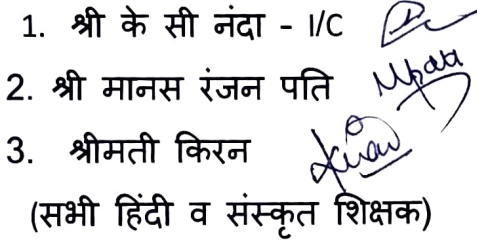 1. श्री के सी नंदा - I/C
2. श्री मानस रंजन पति Mpati
3. श्रीमती किरन Kiran
(सभी हिंदी व संस्कृत शिक्षक)